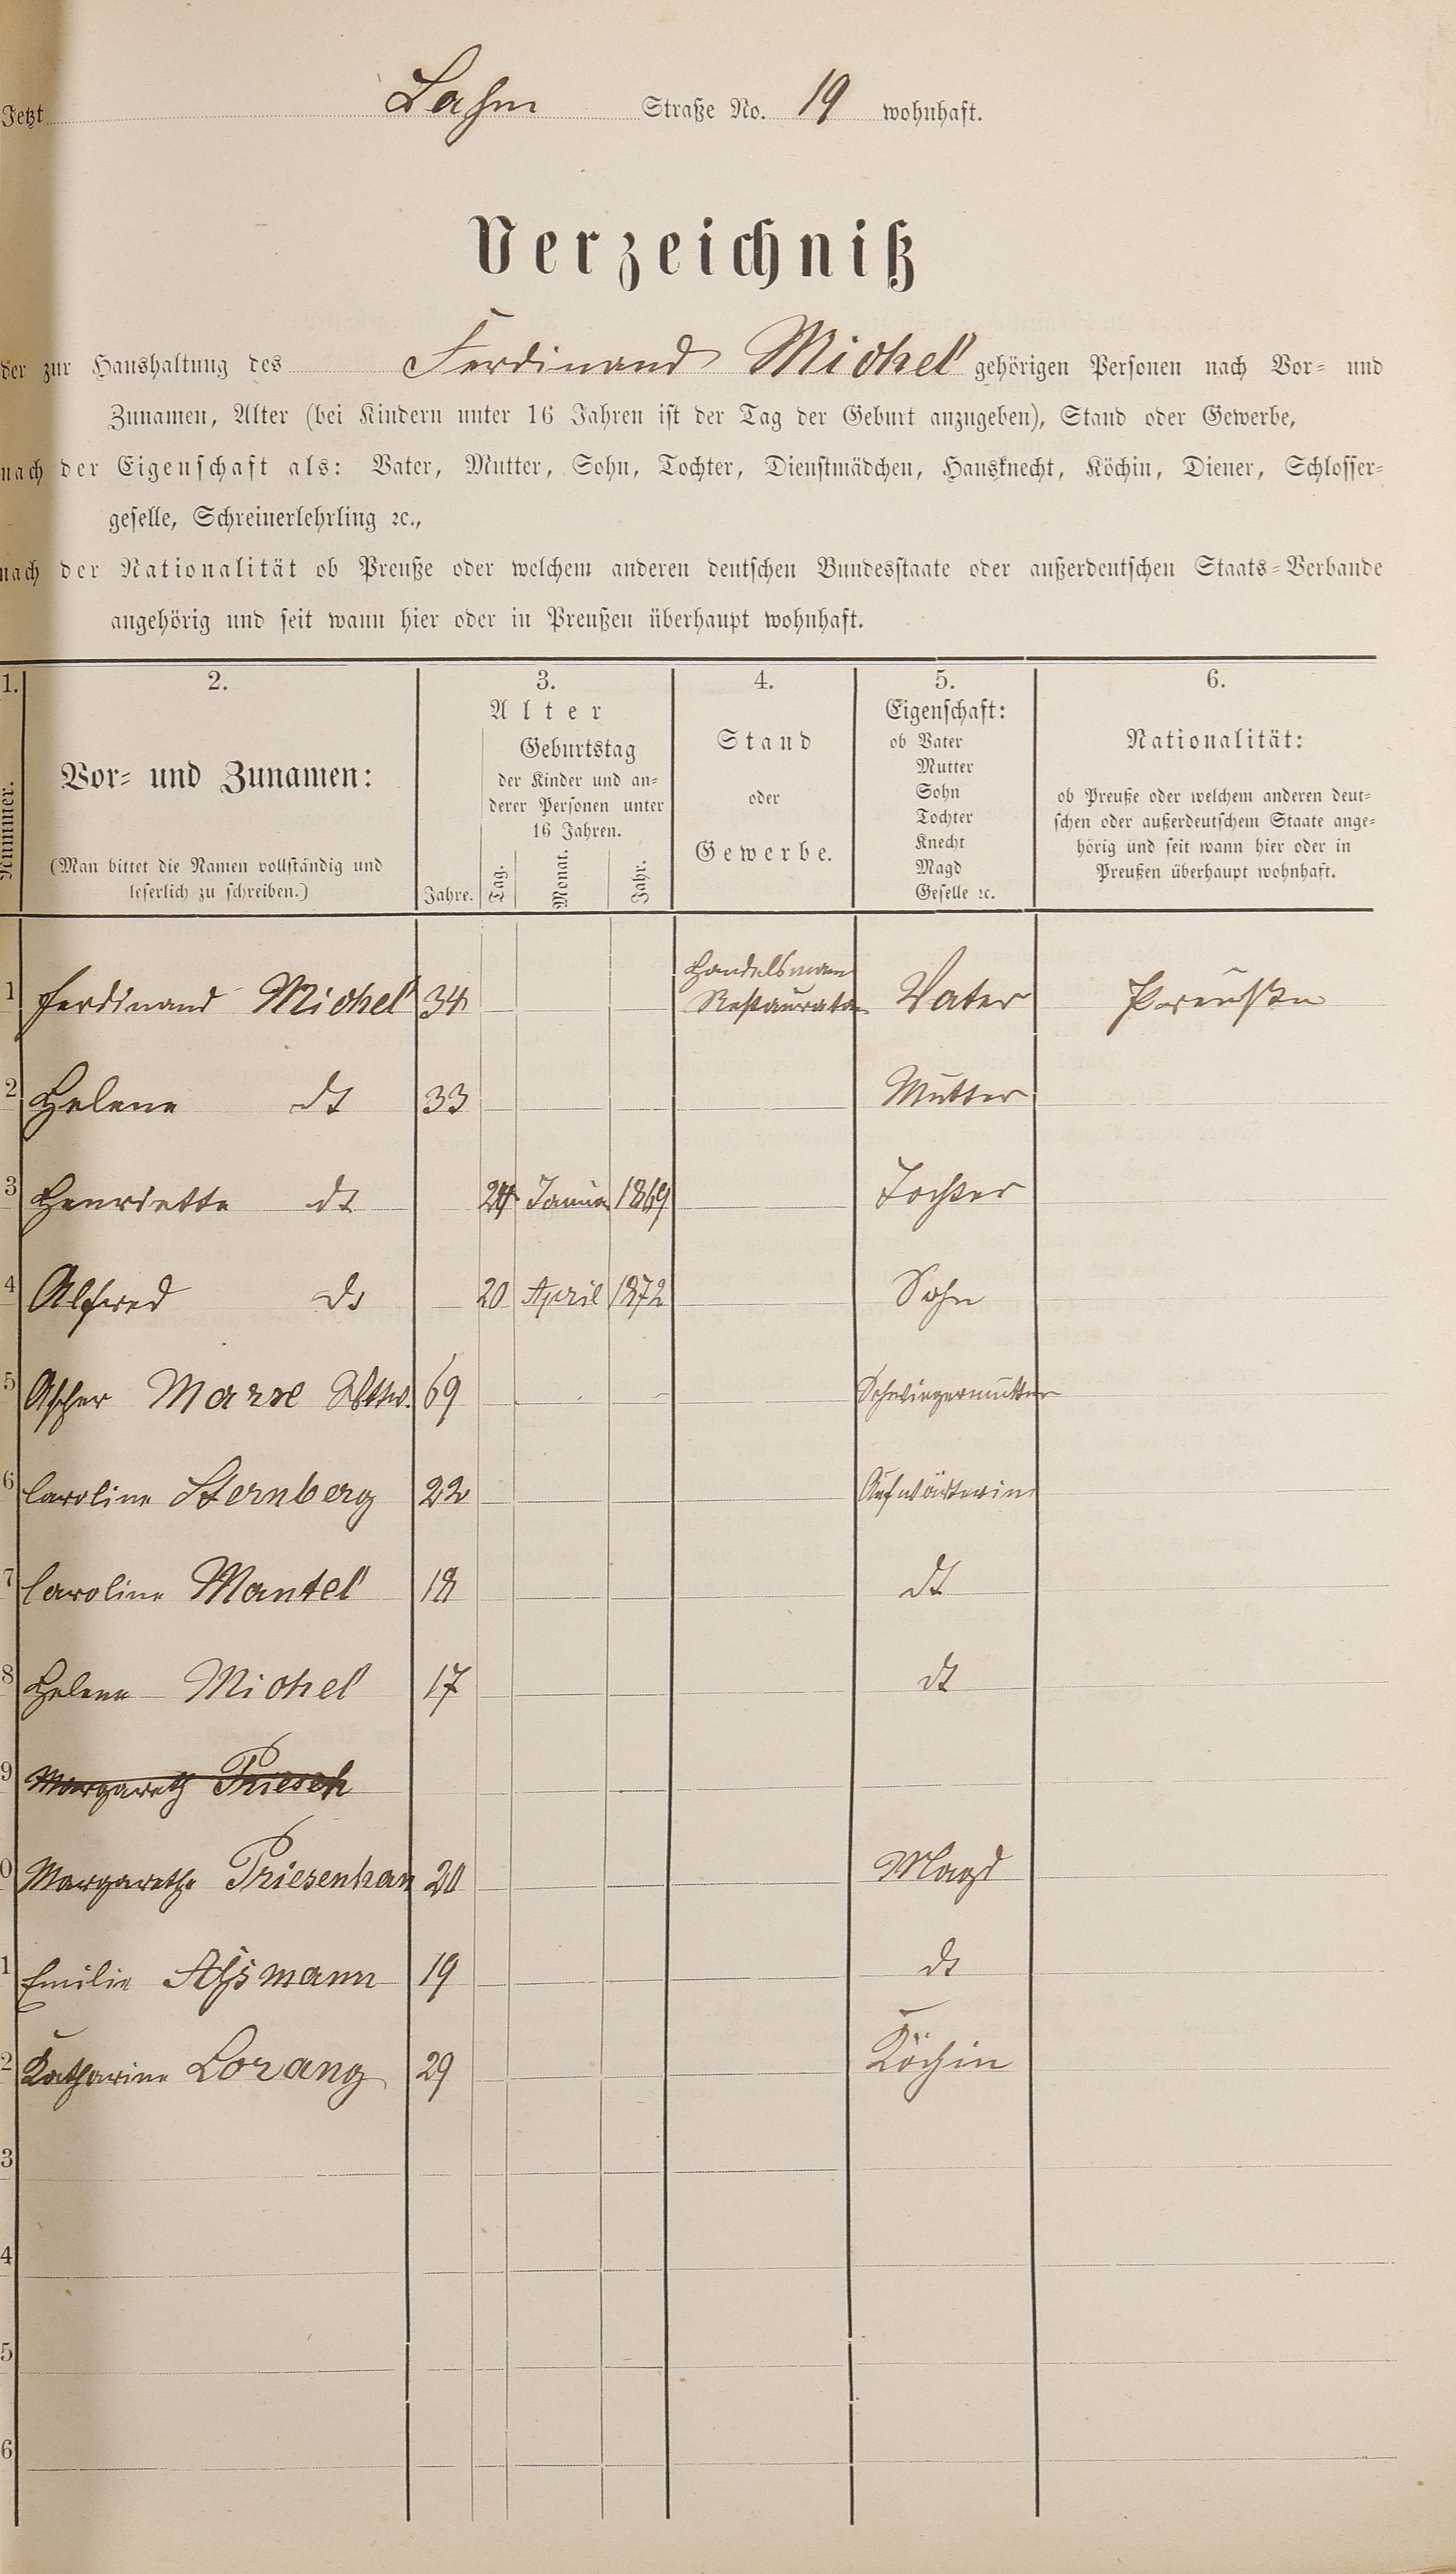 Jetzt Lahn Straße No. 19 wohnhaft.
Verzeichniß
der zur Haushaltung des Ferdinand Michel gehörigen Personen nach Vor- und
Zunamen, Alter (bei Kindern unter 16 Jahren ist der Tag der Geburt anzugeben), Stand oder Gewerbe,
nach der Eigenschaft als: Vater, Mutter, Sohn, Tochter, Dienstmädchen, Hausknecht, Köchin, Diener, Schlosser-
geselle, Schreinerlehrling ꝛc.,
nach der Nationalität ob Preuße oder welchem anderen deutschen Bundesstaate oder außerdeutschen Staats-Verbande
angehörig und seit wann hier oder in Preußen überhaupt wohnhaft.
1.
Nummer.
2.
Vor- und Zunamen:
(Man bittet die Namen vollständig und
leserlich zu schreiben.)
3.
Alter
Jahre.
Geburtstag
der Kinder und an-
derer Personen unter
16 Jahren.
Tag. Monat. Jahr.
4.
Stand
oder
Gewerbe.
5.
Eigenschaft:
ob Vater
Mutter
Sohn
Tochter
Knecht
Magd
Geselle ꝛc.
6.
Nationalität:
ob Preuße oder welchem anderen deut-
schen oder außerdeutschem Staate ange-
hörig und seit wann hier oder in
Preußen überhaupt wohnhaft.
Handelsmann
1 Ferdinand Michel 34 Restaurator Vater Preußen
2 Helene dt 33 Mutter
3 Henriette dt 24 Januar 1869 Tochter
4 Alfred do 20 April 1872 Sohn
5 Ascher Marx Wttw. 69 Schwiegermutter
6 Caroline Sternberg 22 Aufwärterin
7 Caroline Mantel 18 dt
8 Helene Michel 17 dt
9 Margareth Priesen
0 Margarethe Priesenhan 20 Magd
1 Emilie Assmann 19 dt
2 Katharine Lorang 29 Köchin
3
4
5
6